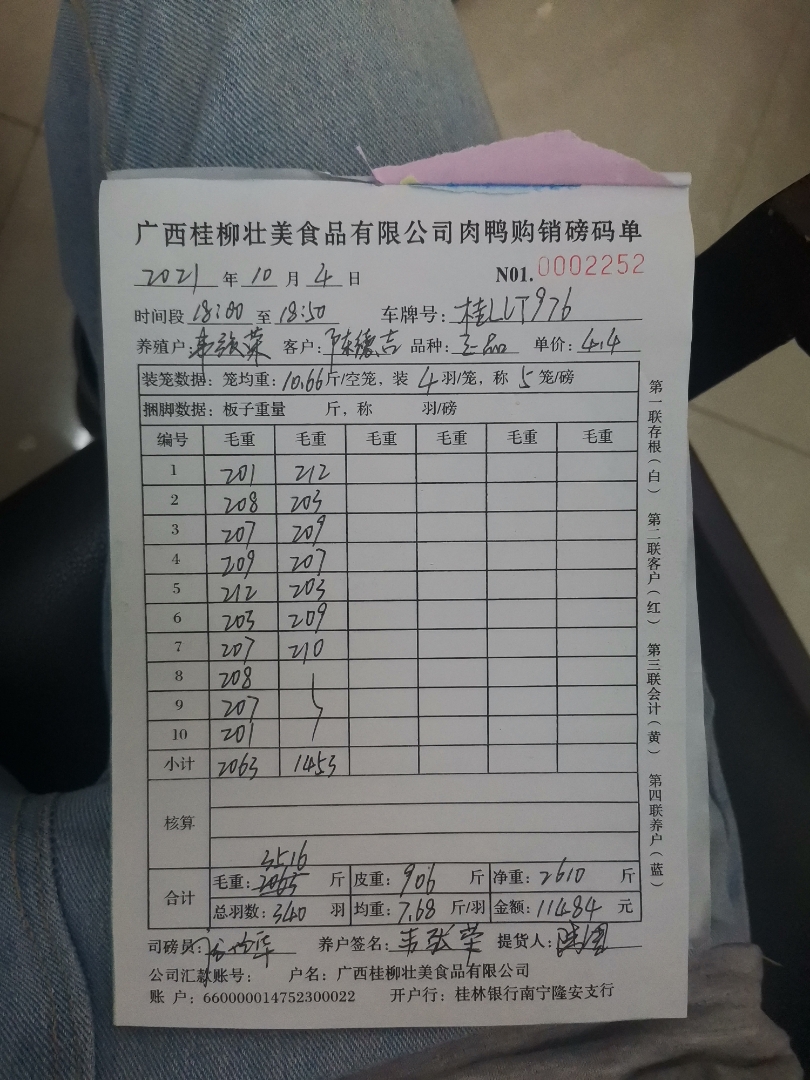 广西桂柳壮美食品有限公司肉鸭购销磅码单
2021 年 10 月 4 日 N01. 0002252
时间段 18:00 至 18:50 车牌号: 桂LLT976
养殖户: 韦张荣 客户: 陈德吉 品种: 三品 单价: 4.4
装笼数据: 笼均重: 10.66 斤/空笼, 装 4 羽/笼, 称 5 笼/磅
捆脚数据: 板子重量 斤, 称 羽/磅
编号 毛重 毛重 毛重 毛重 毛重 毛重
1 201 212
2 208 203
3 207 209
4 209 207
5 212 203
6 203 209
7 207 210
8 208
9 207
10 201
小计 2063 1453
核算
3516
合计 毛重: 2063 斤 皮重: 906 斤 净重: 2610 斤
总羽数: 340 羽 均重: 7.68 斤/羽 金额: 11484 元
司磅员: 养户签名: 韦张荣 提货人:
公司汇款账号: 户名: 广西桂柳壮美食品有限公司
账 户: 660000014752300022 开户行: 桂林银行南宁隆安支行
第一联存根(白) 第二联客户(红) 第三联会计(黄) 第四联养户(蓝)